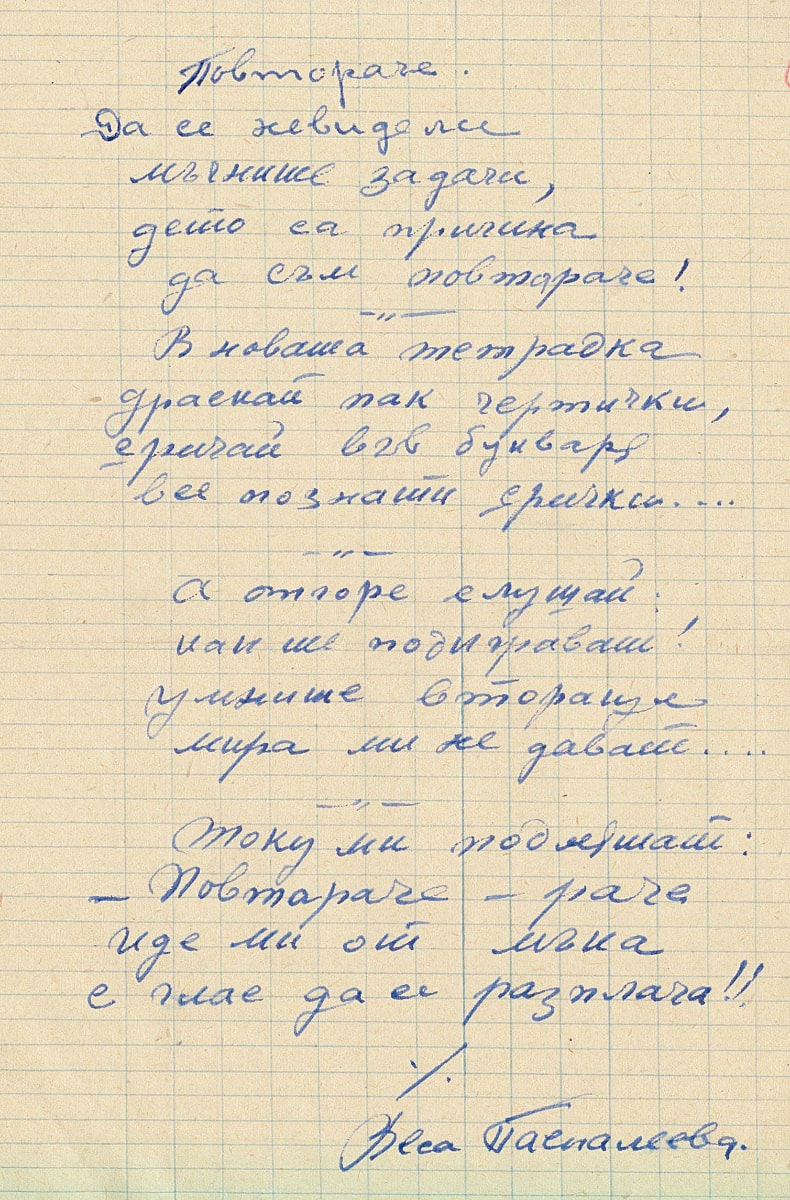 Повтораче.
Да се невидели
мъчните задачи,
дето са причина
да съм повтораче!
—"—
В новата тетрадка
драскай пак чертички,
сричай във букваря
все познати срички....
—"—
А отгоре слушай:
как те подиграват!
умните вторанця
мира ми не дават....
—"—
Току ми подмятат:
– Повтораче – раче
иде ми от мъка
с глас да се разплача!!
./.
Веса Паспалеева.